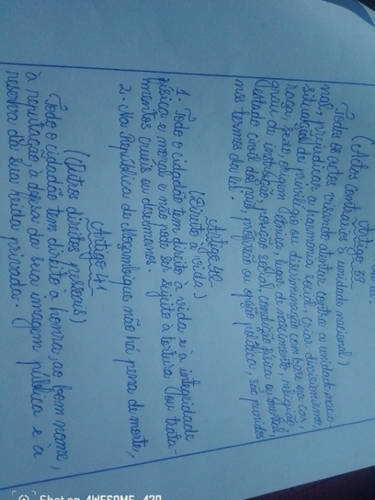 Artigo 39
(Actos contrários à unidade nacional)
Todos os actos visando atentar contra a unidade nacio-
nal, prejudicar a harmonia social, criar divisionismo,
situações de privilégio ou discriminação com base na cor,
raça, sexo, origem étnica, lugar de nascimento, religião,
grau de instrução, posição social, condição física ou mental,
estado civil dos pais, profissão ou opção política, são punidos
nos termos da lei.
Artigo 40
(Direito à vida)
1. Todo o cidadão tem direito à vida e à integridade
física e moral e não pode ser sujeito à tortura ou trata-
mentos cruéis ou desumanos.
2. Na República de Moçambique não há pena de morte.
Artigo 41
(Outros direitos pessoais)
Todo o cidadão tem direito à honra, ao bom nome,
à reputação, à defesa da sua imagem pública e à
reserva da sua vida privada.
Shot on AWESOME A70